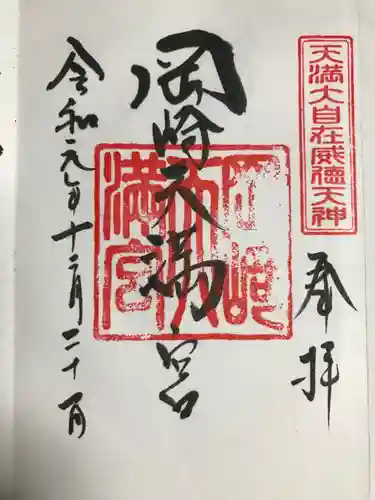 天満大自在威徳天神
奉拝
岡崎天満宮
岡崎
天満宮
令和元年十二月二十一日